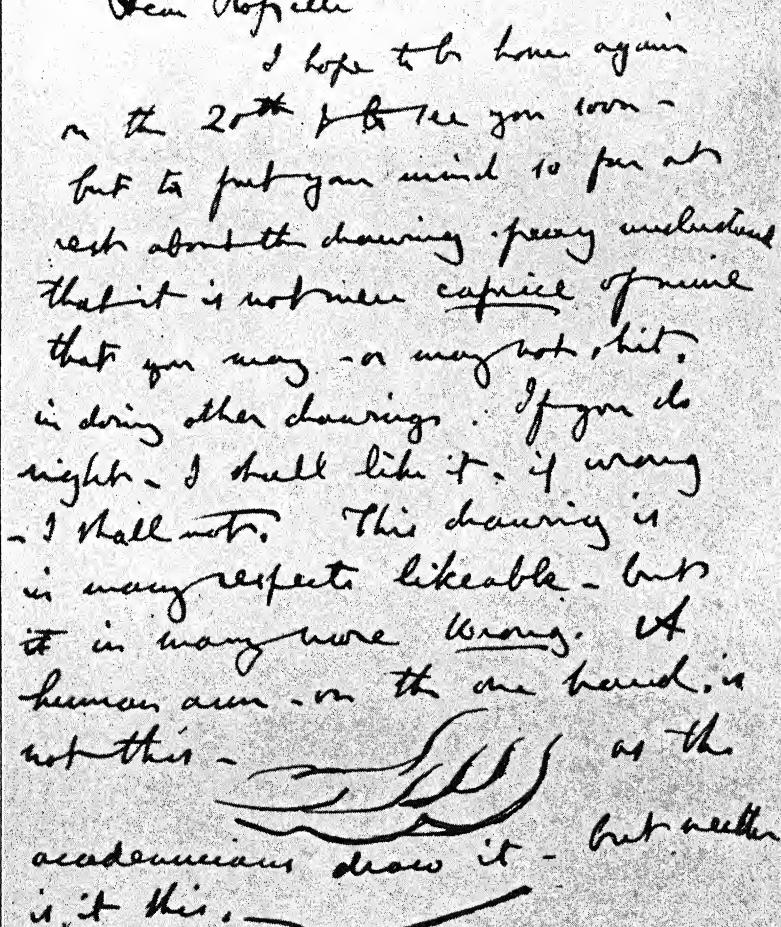 Dear Rossetti
I hope to be home again
on the 20th & to see you soon -
but to put your mind so far at
rest about the drawing - pray understand
that it is not mere caprice of mine
that you may - or may not, hit,
in doing other drawings. If you do
right - I shall like it - if wrong
- I shall not. This drawing is
in many respects likeable - but
it in many more wrong. A
human arm - on the one hand, is
not this - as the
academicians draw it - but neither
is it this. -